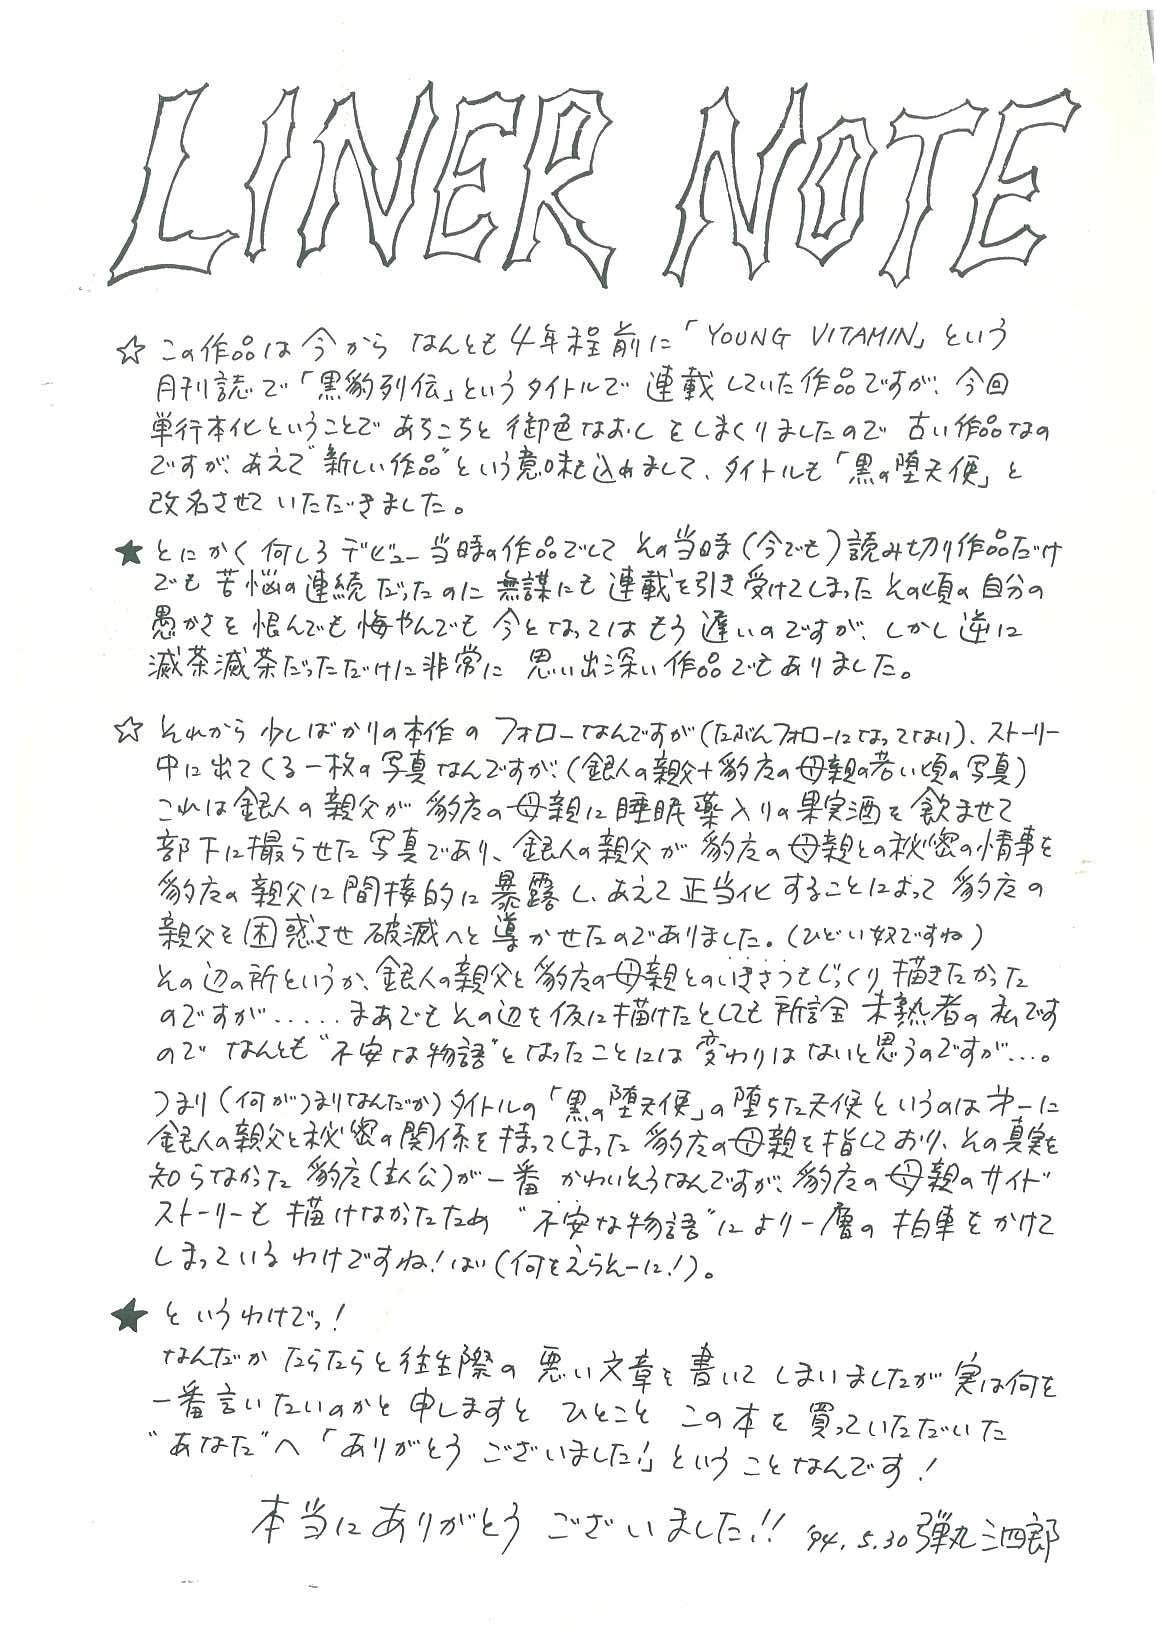 LINER NOTE
☆ この作品は今から なんとも4年程前に「YOUNG VITAMIN」という
月刊誌で「黒豹列伝」というタイトルで 連載していた作品ですが、今回
単行本化ということで あちこちと 御色なおしをしまくりましたので 古い作品なの
ですが、あえて“新しい作品”という意味も込めまして、タイトルも「黒の堕天使」と
改名させていただきました。
★ とにかく何しろデビュー当時の作品でして その当時(今でも)読み切り作品だけ
でも 苦悩の連続だったのに 無謀にも 連載を引き受けてしまった その頃の自分の
愚かさを 恨んでも悔やんでも 今となっては もう 遅いのですが、しかし逆に
滅茶滅茶だっただけに非常に 思い出深い作品でもありました。
☆ それから 少しばかりの本作の フォローなんですが(たぶんフォローになってない)、ストーリー
中に出てくる一枚の写真なんですが、(銀人の親父+豹彦の母親の若い頃の写真)
これは銀人の親父が 豹彦の母親に睡眠薬入りの果実酒を飲ませて
部下に撮らせた写真であり、銀人の親父が 豹彦の母親との秘密の情事を
豹彦の親父に間接的に 暴露し、あえて正当化することによって 豹彦の
親父を困惑させ 破滅へと導かせたのでありました。(ひどい奴ですね)
その辺の所というか、銀人の親父と豹彦の母親とのいきさつもじっくり描きたかった
のですが.....まあでもその辺を仮に描けたとしても 所詮 未熟者の私です
ので なんとも“不安な物語”となったことには 変わりはないと思うのですが...。
つまり(何がつまりなんだか)タイトルの「黒の堕天使」の堕ちた天使というのは才一に
銀人の親父と秘密の関係を持ってしまった 豹彦の母親を指しており、その真実を
知らなかった 豹彦(主人公)が一番 かわいそうなんですが、豹彦の母親のサイド
ストーリーも 描けなかったため “不安な物語”により一層の 拍車をかけて
しまっているわけですね!はい(何をえらそーに!)。
★ というわけでっ!
なんだか たらたらと往生際の 悪い文章を書いてしまいましたが 実は何を
一番言いたいのかと申しますと ひとこと この本を買っていただいた
“あなた”へ「ありがとう ございました!」ということなんです!
本当にありがとう ございました!! '94.5.30 弾丸三四郎